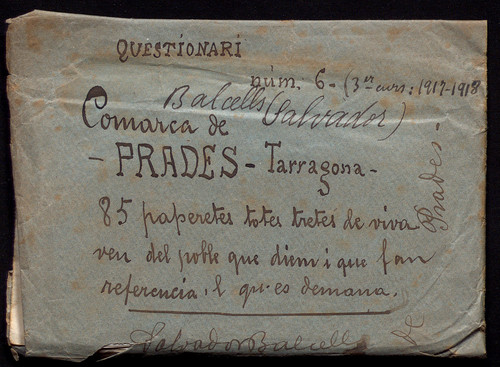 QUESTIONARI
núm. 6 - (3er curs: 1917-1918
Balcells (Salvador)
Comarca de
- PRADES - Tarragona -
85 paperetes totes tretes de viva
veu del poble que diem i que fan
referencia l que es demana.
Salvador Balcells
de Prades -